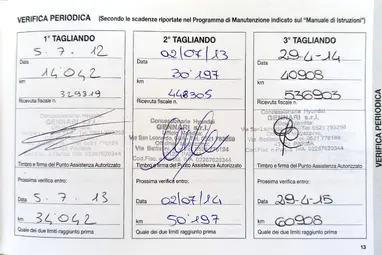 VERIFICA PERIODICA (Secondo le scadenze riportate nel Programma di Manutenzione indicato sul "Manuale di Istruzioni")
1° TAGLIANDO
5. 7. 12
Data
14042
km
329319
Ricevuta fiscale n.
Concessionaria Hyundai
GENNARI s.r.l.
Timbro e firma del Punto Assistenza Autorizzato
Prossima verifica entro:
5. 7. 13
Data
34042
km
Quale dei due limiti raggiunto prima
2° TAGLIANDO
02/07/13
Data
30197
km
448305
Ricevuta fiscale n.
Concessionaria Hyundai
GENNARI s.r.l.
Timbro e firma del Punto Assistenza Autorizzato
Prossima verifica entro:
02/07/14
Data
50197
km
Quale dei due limiti raggiunto prima
3° TAGLIANDO
29-4-14
Data
40908
km
536903
Ricevuta fiscale n.
Concessionaria Hyundai
GENNARI s.r.l.
Timbro e firma del Punto Assistenza Autorizzato
Prossima verifica entro:
29-4-15
Data
60908
km
Quale dei due limiti raggiunto prima
VERIFICA PERIODICA
13